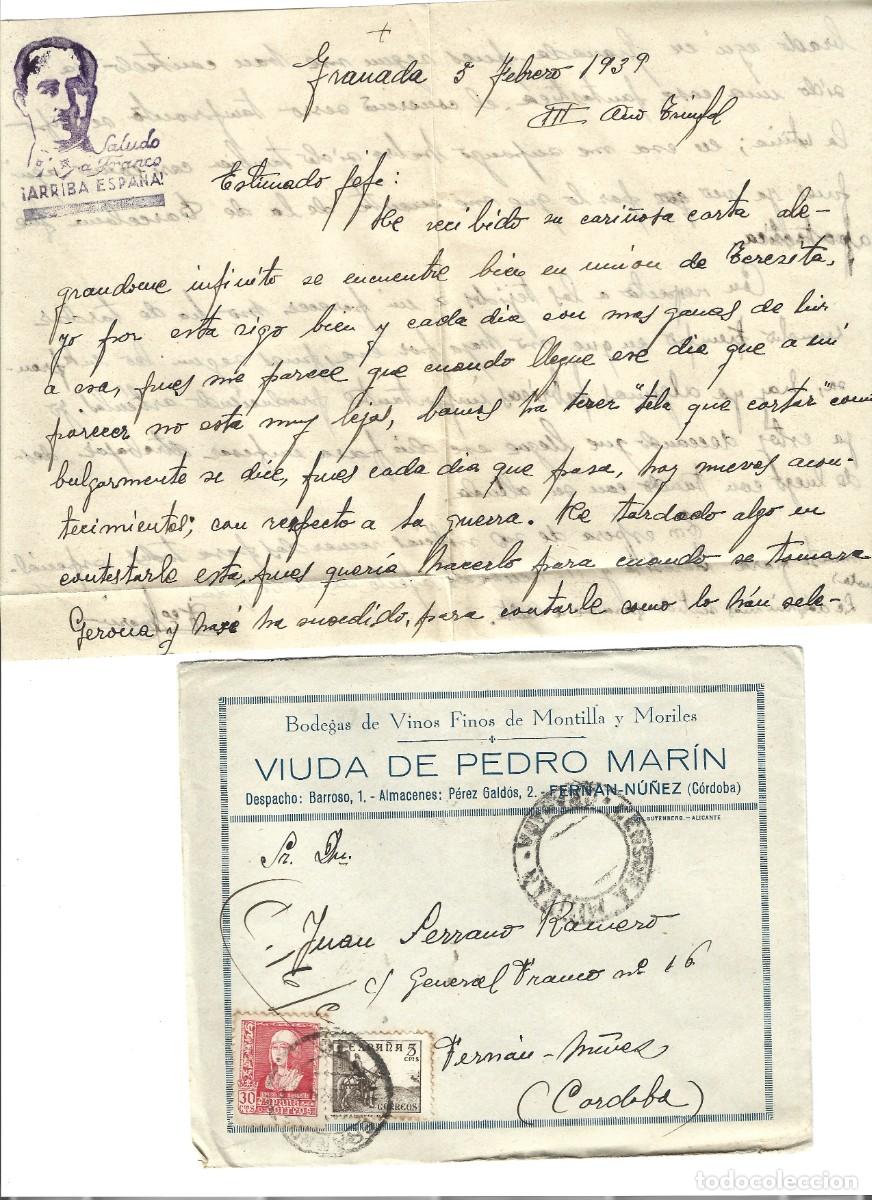 +
Granada 5 Febrero 1939
III Año Triunfal
Saludo
a Franco
¡ARRIBA ESPAÑA!
Estimado Jefe:
He recibido su cariñosa carta ale-
grandome infinito se encuentre bien en union de Teresita,
yo por esta sigo bien y cada dia con mas ganas de
a esa, pues me parece que cuando llegue ese dia que a mi
parecer no está muy lejos, bamos ha tener "tela que cortar" como
bulgarmente se dice, pues cada dia que pasa, hay nuevos acon-
tecimientos; con respecto a la guerra. He tardado algo en
contestarle esta, pues queria hacerlo para cuando se tomara
Gerona y ha sucedido, para contarle como lo hán cele-
Bodegas de Vinos Finos de Montilla y Moriles
VIUDA DE PEDRO MARÍN
Despacho: Barroso, 1. - Almacenes: Pérez Galdós, 2. - FERNAN-NÚÑEZ (Córdoba)
GUTENBERG. - ALICANTE
CENSURA MILITAR
Sr. Dn.
Juan Serrano Romero
c/ General Franco nº 16
Fernán-Núñez
(Cordoba)
30
CTS
CORREOS
ESPAÑA 5
CTS
CORREOS
todocoleccion